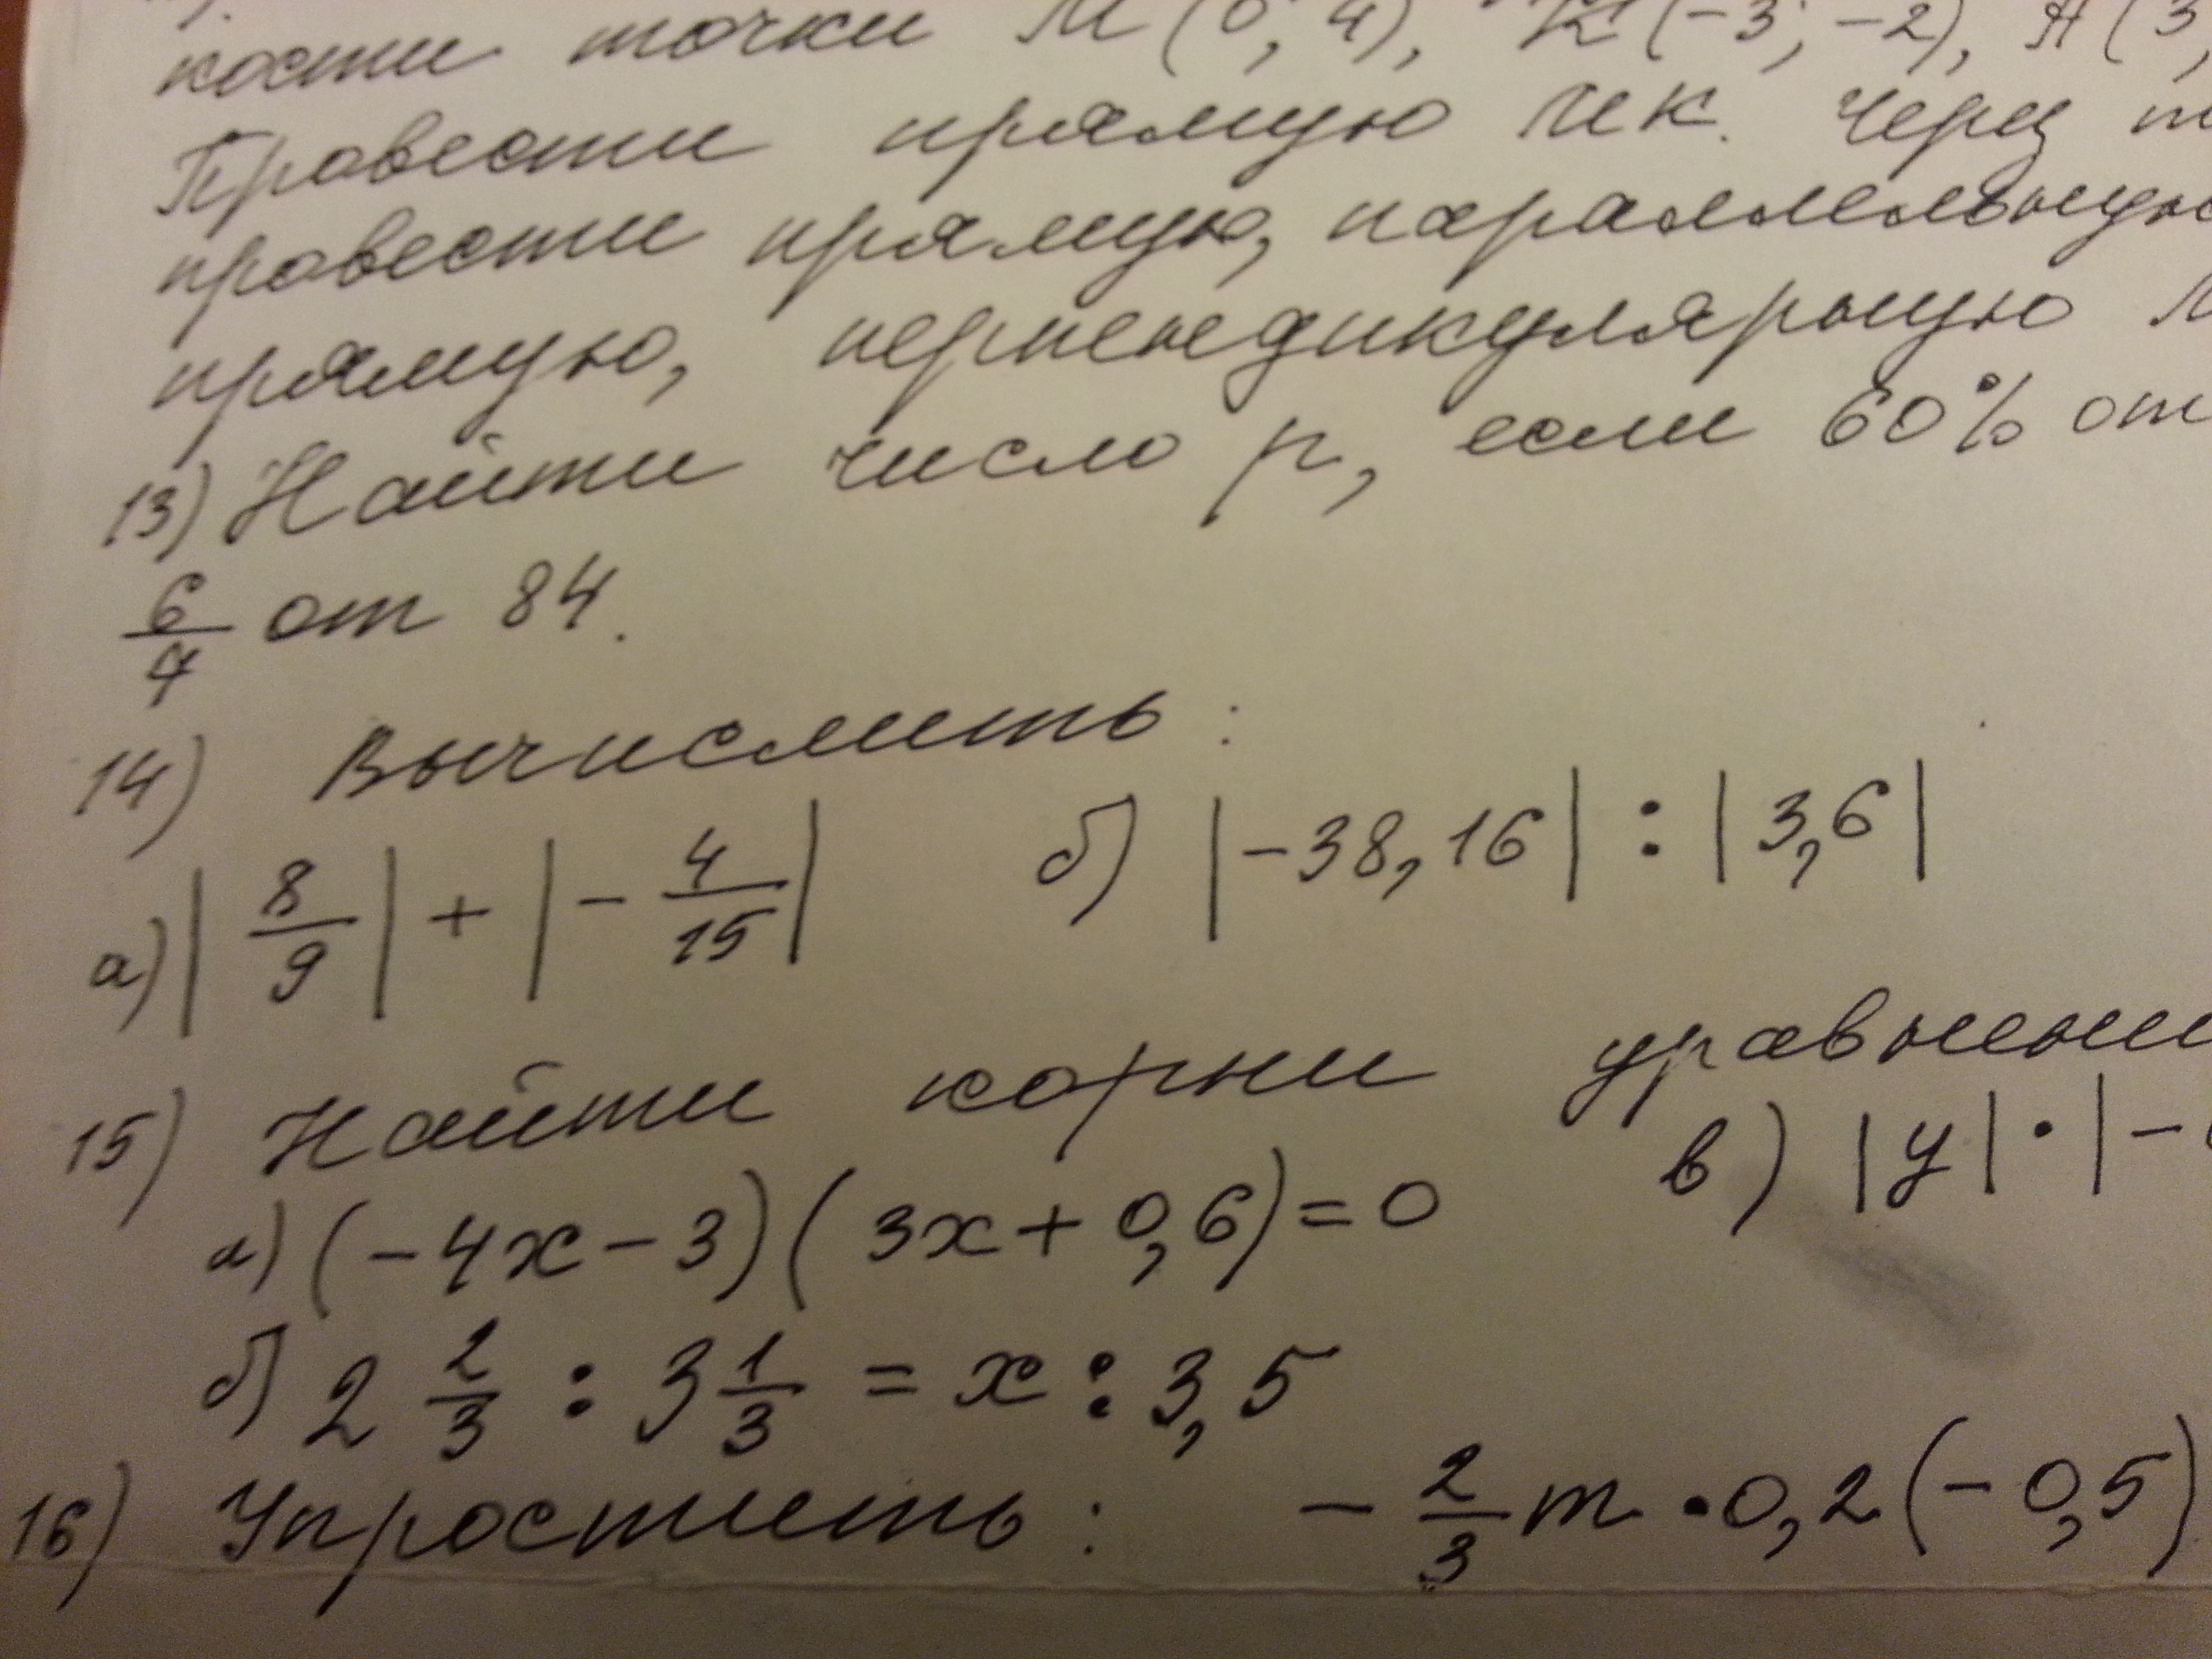 кости точки М (0; 4), К (-3; -2), А (3;
Провести прямую МК. Через
провести прямую, параллельную
прямую, перпендикулярную
13) Найти число p, если 60% от
6/7 от 84.
14) Вычислить:
а) |8/9| + |-4/15| б) |-38,16| : |3,6|
15) Найти корни уравнени
а) (-4x-3)(3x+0,6)=0 в) |y|·|-
б) 2 2/3 : 3 1/3 = x : 3,5
16) Упростить: -2/3 m · 0,2(-0,5)